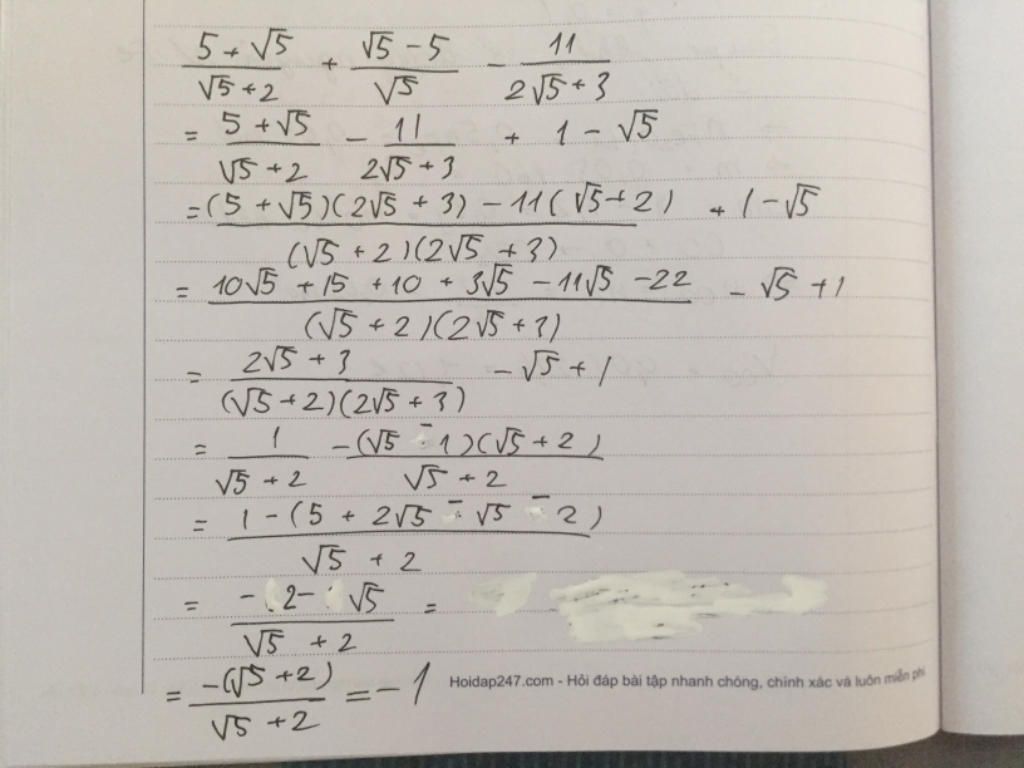 (5 + √5)/(√5 + 2) + (√5 - 5)/√5 - 11/(2√5 + 3)
= (5 + √5)/(√5 + 2) - 11/(2√5 + 3) + 1 - √5
= ((5 + √5)(2√5 + 3) - 11(√5 + 2))/((√5 + 2)(2√5 + 3)) + 1 - √5
= (10√5 + 15 + 10 + 3√5 - 11√5 - 22)/((√5 + 2)(2√5 + 3)) - √5 + 1
= (2√5 + 3)/((√5 + 2)(2√5 + 3)) - √5 + 1
= 1/(√5 + 2) - ((√5 - 1)(√5 + 2))/(√5 + 2)
= (1 - (5 + 2√5 - √5 - 2))/(√5 + 2)
= (-2 - √5)/(√5 + 2) =
= (-(√5 + 2))/(√5 + 2) = -1
Hoidap247.com - Hỏi đáp bài tập nhanh chóng, chính xác và luôn miễn phí